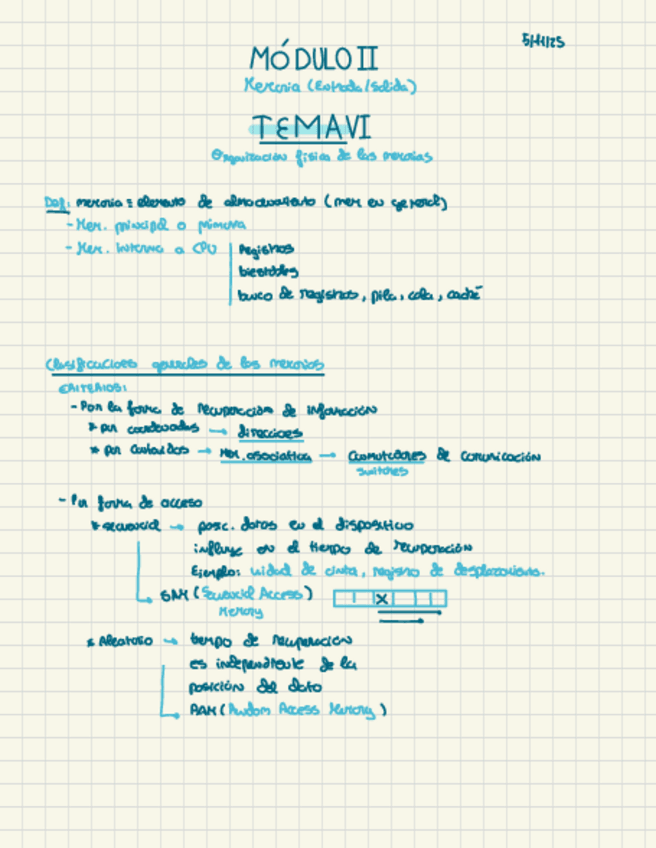 5/11/25
MÓDULO II
Memoria (Entrada/Salida)
TEMA VI
Organización física de las memorias
Def: memoria = elemento de almacenamiento (mem en general)
- Mem. principal o primaria
- Mem. interna a CPU
registros
biestables
banco de registros, pila, cola, caché
Clasificaciones generales de las memorias
CRITERIOS:
- Por la forma de recuperación de información
* por coordenadas → direcciones
* por contenidos → Mem. asociativa → Conmutadores de comunicación
switches
- Por forma de acceso
* secuencial → posic. datos en el dispositivo
influye en el tiempo de recuperación
Ejemplo: unidad de cinta, registro de desplazamiento.
SAM (Secuencial Access)
Memory
X
* Aleatorio → tiempo de recuperación
es independiente de la
posición del dato
RAM (Random Access Memory)